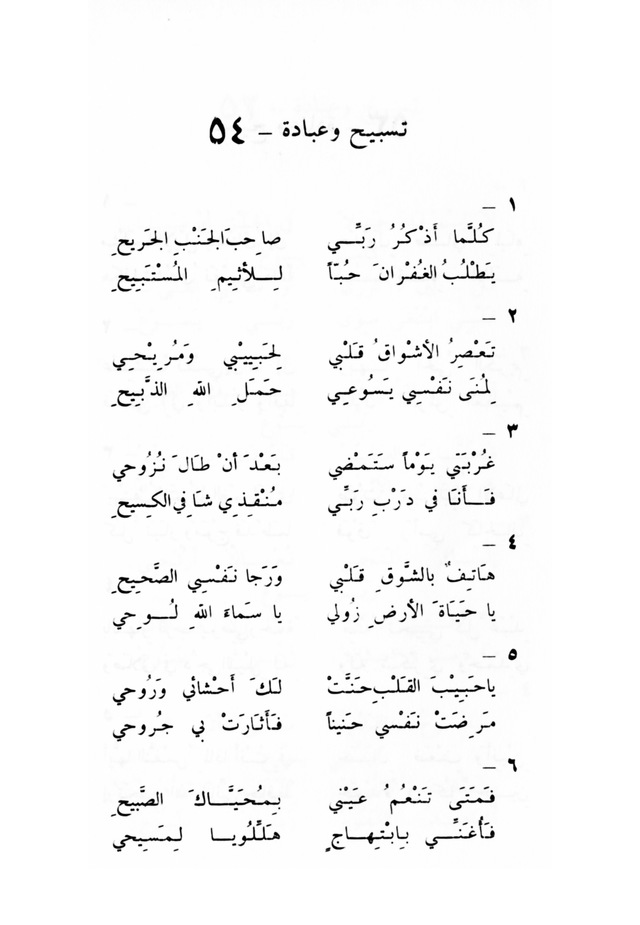 تسبيح وعبادة – ٥٤
١ –
كُلَّما أذْكُرُ رَبِّـي صاحِبَ الجَنْبِ الجَريحِ
يَطْلُبُ الغُفْرانَ حُبّاً لِـلأثِيمِ المُسْتَبِيحِ
٢ –
تَعْصِرُ الأشْواقُ قَلْبي لِحَبِيْبي ومُرِيْحِي
لِمُنَى نَفْسِي يَسُوعِي حَمَلِ اللهِ الذَّبِيحِ
٣ –
غُرْبَتي يَوْماً سَتَمْضي بَعْدَ أنْ طالَ نُزُوحي
فَـأنا في دَرْبِ رَبِّي مُنْقِذي شافي الكسيحِ
٤ –
هاتِفٌ بالشَّوقِ قَلْبي ورَجا نَفْسي الصَّحيحِ
يا حَيَاةَ الأرضِ زُولي يا سَماءَ اللهِ لُـوحِي
٥ –
ياحَبِيْبَ القَلْبِ حَنَّتْ لَكَ أحْشائي ورُوحي
مَرِضَتْ نَفْسي حَنيناً فَأثارَتْ بي جُروحي
٦ –
فَمَتَى تَنْعُمُ عَيْني بِمُحَيَّـاكَ الصَّبيحِ
فَأُغَنِّـي بِابْتِهـاجٍ هَلِّلُويـا لِمَسِيحي